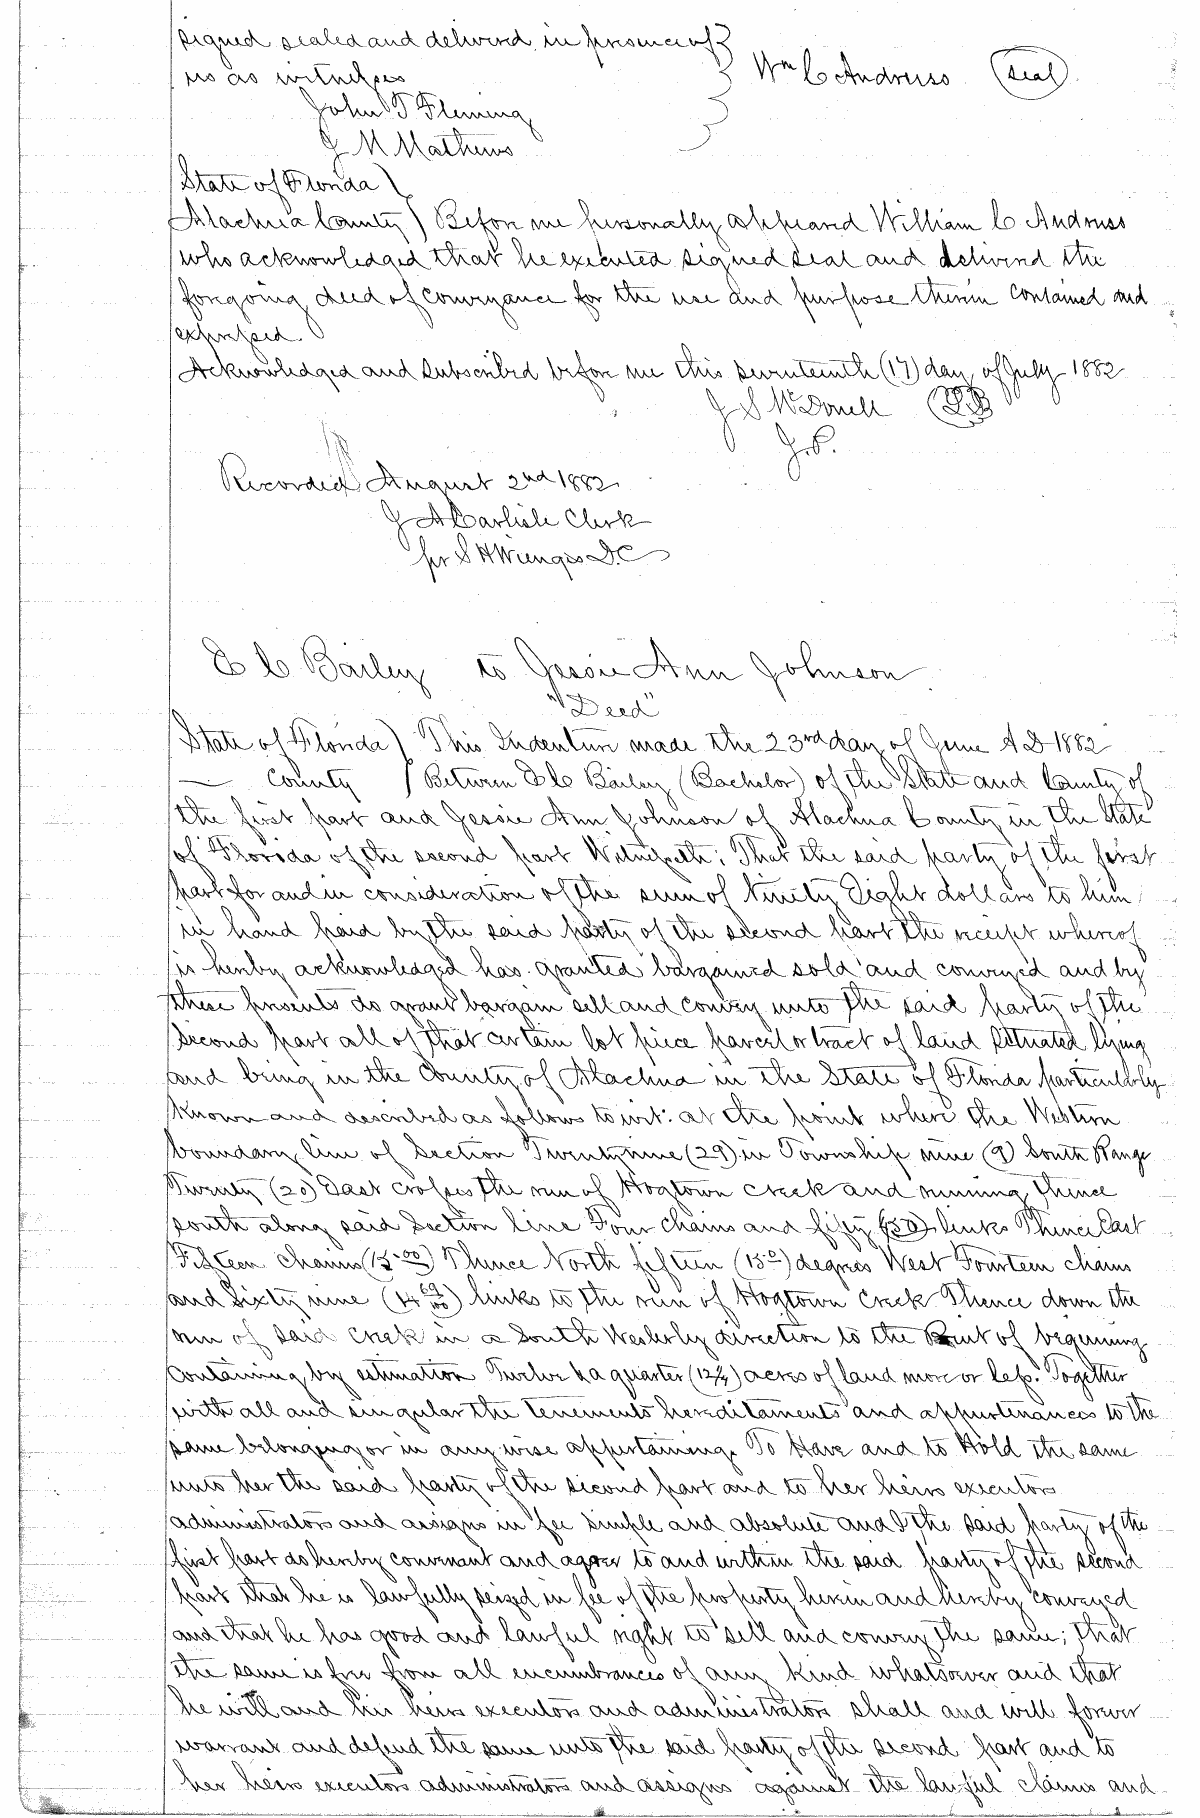 signed sealed and delivered in presence of
us as witnesses
Wm C Andruss (Seal)
John T Fleming
J M Mathews
State of Florida )
Alachua County ) Before me personally appeared William C Andruss
who acknowledged that he executed signed seal and delivered the
foregoing deed of conveyance for the use and purpose therein contained and
expressed.
Acknowledged and subscribed before me this seventeenth (17) day of July 1882
J S McDonell
J.P.
Recorded August 2nd 1882
J A Carlisle Clerk
per S H Wienges D.C
E C Bailey to Jessie Ann Johnson
"Deed"
State of Florida ) This Indenture made the 23rd day of June A D 1882
— County ) Between E C Bailey (Bachelor) of the State and County of
the first part and Jessie Ann Johnson of Alachua County in the State
of Florida of the second part Witnesseth: That the said party of the first
part for and in consideration of the sum of Ninety Eight dollars to him
in hand paid by the said party of the second part the receipt whereof
is hereby acknowledged has granted bargained sold and conveyed and by
these presents do grant bargain sell and convey unto the said party of the
second part all of that certain lot piece parcel or tract of land situated lying
and being in the County of Alachua in the State of Florida particularly
known and described as follows to wit: at the point where the Western
boundary line of Section Twenty nine (29) in Township nine (9) South Range
Twenty (20) East crosses the run of Hogtown Creek and running thence
south along said Section line Four chains and fifty (50) links Thence East
Fifteen chains (15.00) Thence North fifteen (15°) degrees West Fourteen chains
and Sixty nine (14 69/100) links to the run of Hogtown Creek Thence down the
run of said creek in a South Westerly direction to the Point of beginning
Containing by estimation Twelve & a quarter (12¼) acres of land more or less. Together
with all and singular the tenements hereditaments and appurtenances to the
same belonging or in any wise appertaining. To Have and to Hold the same
unto her the said party of the second part and to her heirs executors
administrators and assigns in fee simple and absolute and I the said party of the
first part do hereby covenant and agree to and within the said party of the second
part that he is lawfully seized in fee of the property herein and hereby conveyed
and that he has good and lawful right to sell and convey the same; that
the same is free from all encumbrances of any kind whatsoever and that
he will and his heirs executors and administrators shall and will forever
warrant and defend the same unto the said party of the second part and to
her heirs executors administrators and assigns against the lawful claims and